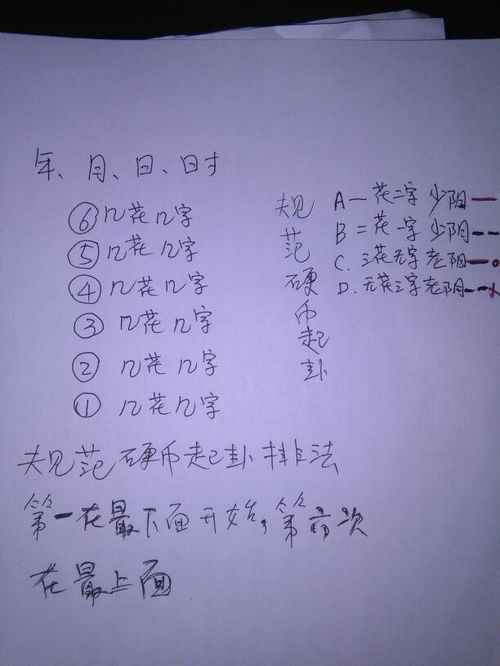 年、月、日、时
⑥几花几字
⑤几花几字
④几花几字
③几花几字
②几花几字
①几花几字
规范硬币起卦
A一花二字 少阳 —
B 二花一字 少阴 --
C. 三花无字老阳 —o
D. 无花三字老阴 --x
规范硬币起卦排法
第一在最下面开始,第六次
在最上面